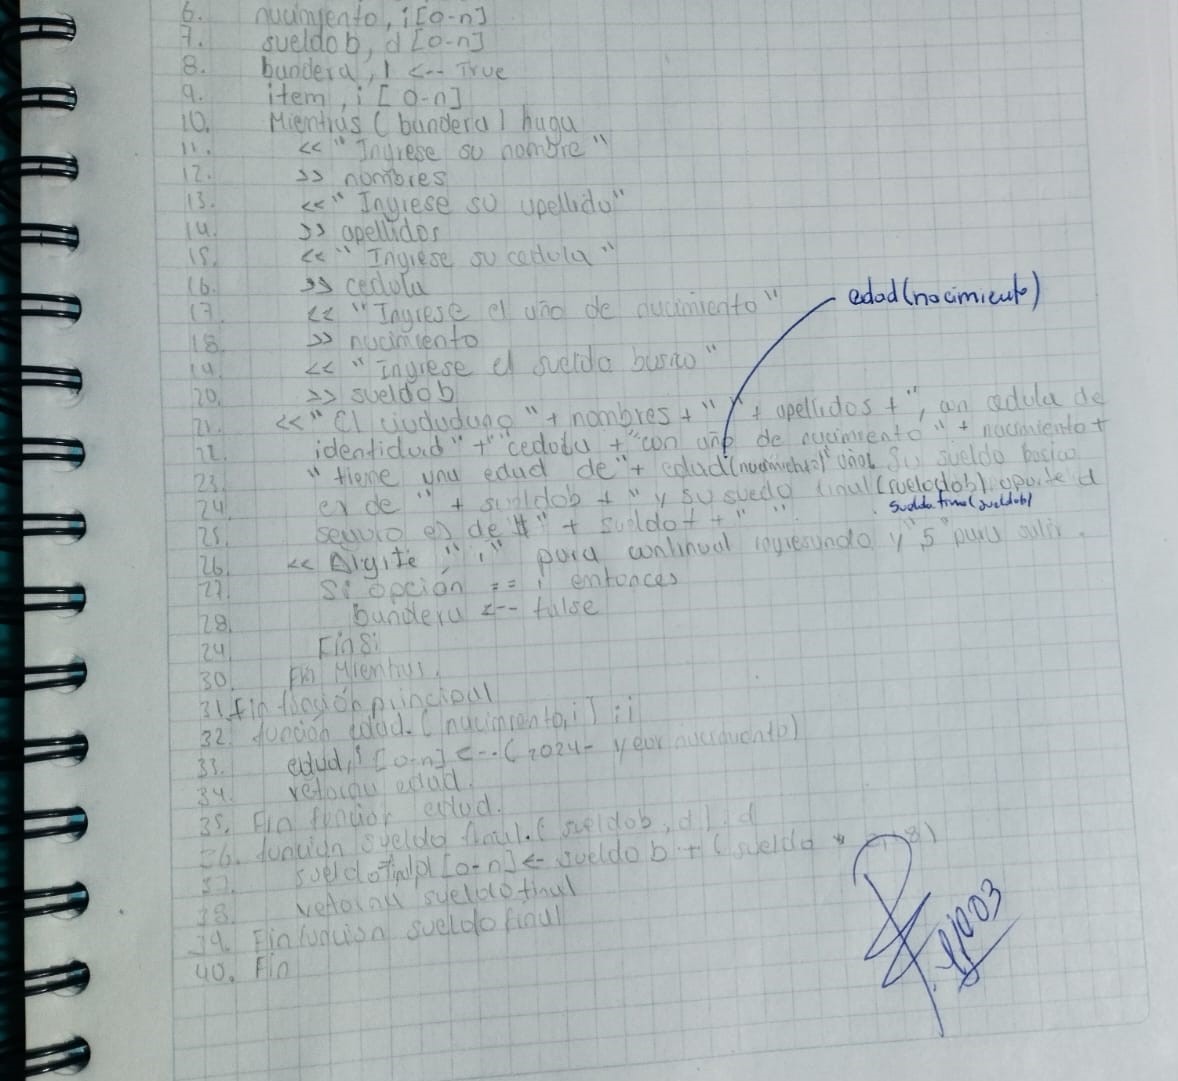 6. nacimiento, i [0-n]
7. sueldob, d [0-n]
8. bandera, l <-- True
9. item, i [0-n]
10. Mientras (bandera) haga
11. << "Ingrese su nombre"
12. >> nombres
13. << "Ingrese su apellido"
14. >> apellidos
15. << "Ingrese su cedula"
16. >> cedula
17. << "Ingrese el año de nacimiento"
edad(nacimiento)
18. >> nacimiento
19. << "Ingrese el sueldo basico"
20. >> sueldob
21. << "El ciudadano "+ nombres + " " + apellidos + ", con cedula de
22. identidad" + "cedula + "con año de nacimiento" + nacimiento +
23. "tiene una edad de "+ edad(nacimiento) años Su sueldo basico
24. es de " + sueldob + " y su sueldo final (sueldob) aporte d
sueldo final(sueldob)
25. seguro es de " + sueldo + " ".
26. << Digite "1" para continuar ingresando y "5" para salir.
27. Si opcion == 1 entonces
28. bandera <-- false
29. Fin Si
30. Fin Mientras.
31. Fin función principal
32. función edad. (nacimiento, i) : i
33. edad, i [0-n] <-- (2024 - year nacimiento)
34. retorna edad.
35. Fin funcion edad.
36. función sueldo final. (sueldob, d) d
37. sueldofinal [0-n] <- sueldo b + (sueldo * 8)
38. retorna sueldo final
39. Fin funcion sueldo final
40. Fin